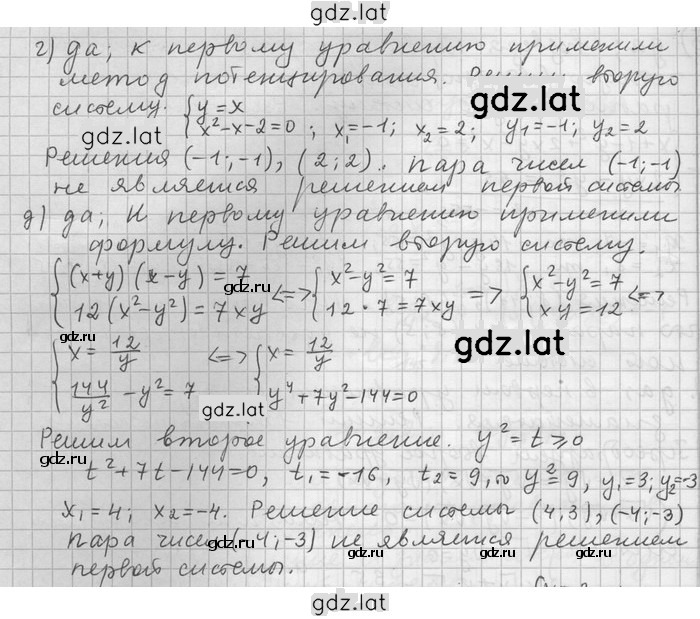 gdz.lat
г) да; к первому уравнению применили
метод потенцирования. вторую
систему. { y = x
x² - x - 2 = 0 ; x₁ = -1; x₂ = 2; y₁ = -1; y₂ = 2
gdz.lat
gdz.lat
Решения (-1; -1), (2; 2). пара чисел (-1; -1)
не является решением первой системы
д) да; К первому уравнению применили
формулу. Решим вторую систему.
{ (x+y)(x-y) = 7 <=> { x² - y² = 7 => { x² - y² = 7
12(x² - y²) = 7xy 12 · 7 = 7xy xy = 12 <=>
gdz.ru
gdz.ru
gdz.ru
{ x = 12/y <=> { x = 12/y
144/y² - y² = 7 y⁴ + 7y² - 144 = 0
gdz.lat
gdz.lat
Решим второе уравнение. y² = t ≥ 0
t² + 7t - 144 = 0, t₁ = -16, t₂ = 9, y² = 9, y₁ = 3; y₂ = -3
gdz.ru
gdz.ru
x₁ = 4; x₂ = -4. Решение системы (4; 3), (-4; -3)
пара чисел (-4; -3) не является решением
первой системы.
gdz.ru
gdz.ru
gdz.lat